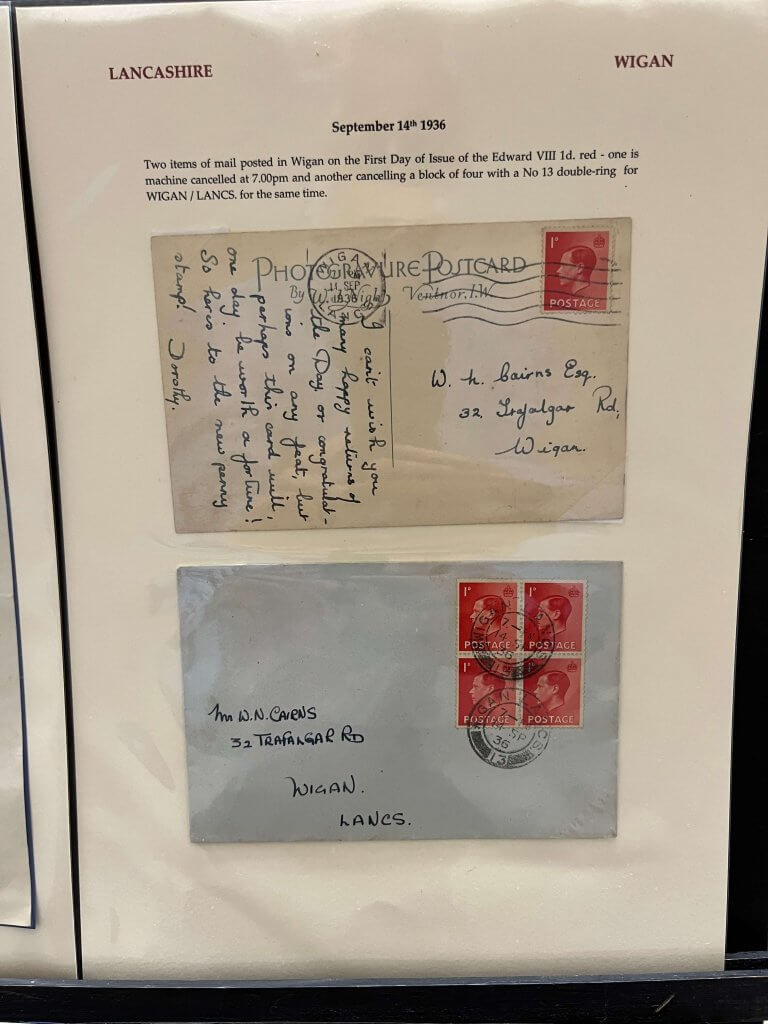 LANCASHIRE
WIGAN
September 14th 1936
Two items of mail posted in Wigan on the First Day of Issue of the Edward VIII 1d. red - one is
machine cancelled at 7.00pm and another cancelling a block of four with a No 13 double-ring for
WIGAN / LANCS. for the same time.
PHOTOGRAVURE POSTCARD
By W. J. Nigh, Ventnor, I.W.
WIGAN
SEP
1936
1D
POSTAGE
I can't wish you
many happy returns of
the Day or congratulat-
ions on any feat, but
perhaps this card will,
one day, be worth a fortune!
So here's to the new penny
stamp! Dorothy.
W. h. Cairns Esq.
32, Trafalgar Rd,
Wigan.
1D 1D
POSTAGE POSTAGE
1D
POSTAGE POSTAGE
WIGAN LANCS
14 SP
36
13
WIGAN LANCS
SP
36
13
Mr W.N. CAIRNS
32 TRAFALGAR RD
WIGAN.
LANCS.